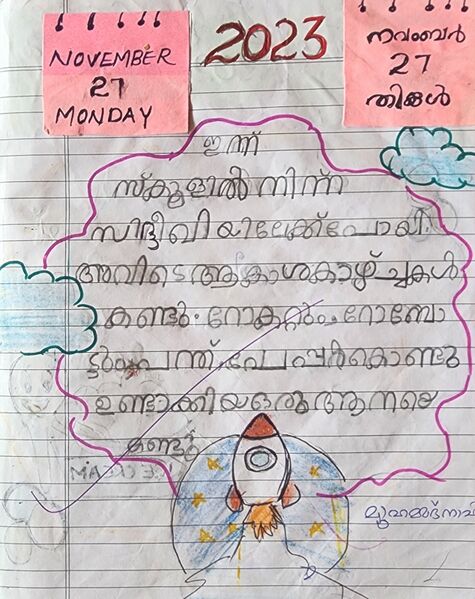 NOVEMBER
27
MONDAY
2023
നവംബർ
27
തിങ്കൾ
ഇന്ന്
സ്കൂളിൽ നിന്ന്
സിദ്ദീഖിയിലേക്ക് പോയി.
അവിടെ ആകാശകാഴ്ച്ചകൾ
കണ്ടു. റോക്കറ്റും റോബോ
ട്ടും പന്ത്. പേപ്പർ കൊണ്ടു
ഉണ്ടാക്കിയ ഒരു ആനയെ
കണ്ടു